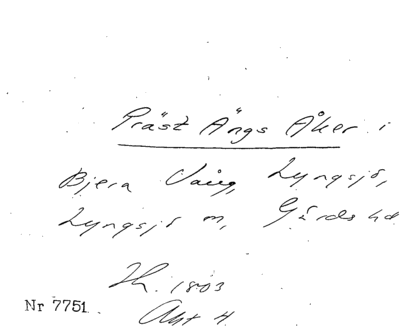 Präst Ängs Åker i
Bjera Vång, Lyngsjö,
Lyngsjö m, Gärds hd
1803
Akt 4
Nr 7751